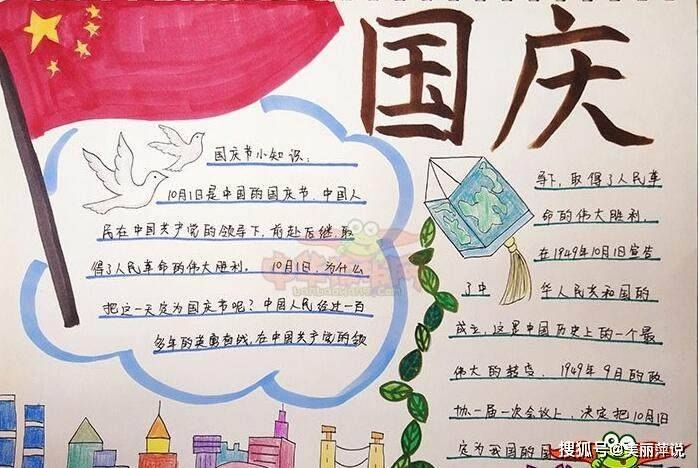 国庆
国庆节小知识：
10月1日是中国的国庆节，中国人
民在中国共产党的领导下，前赴后继，取
得了人民革命的伟大胜利。 10月1日，为什么
把这一天定为国庆节呢？中国人民经过一百
多年的英勇奋战，在中国共产党的领
导下，取得了人民革
命的伟大胜利，
在1949年10月1日宣告
了中 华人民共和国的
成立，这是中国历史上的一个最
伟大的转变。1949年9月的政
协一届一次会议上，决定把10月1日
定为我国的
搜狐号@美丽萍说